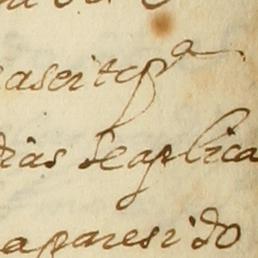 aseite pa
dias se aplica
aparesido